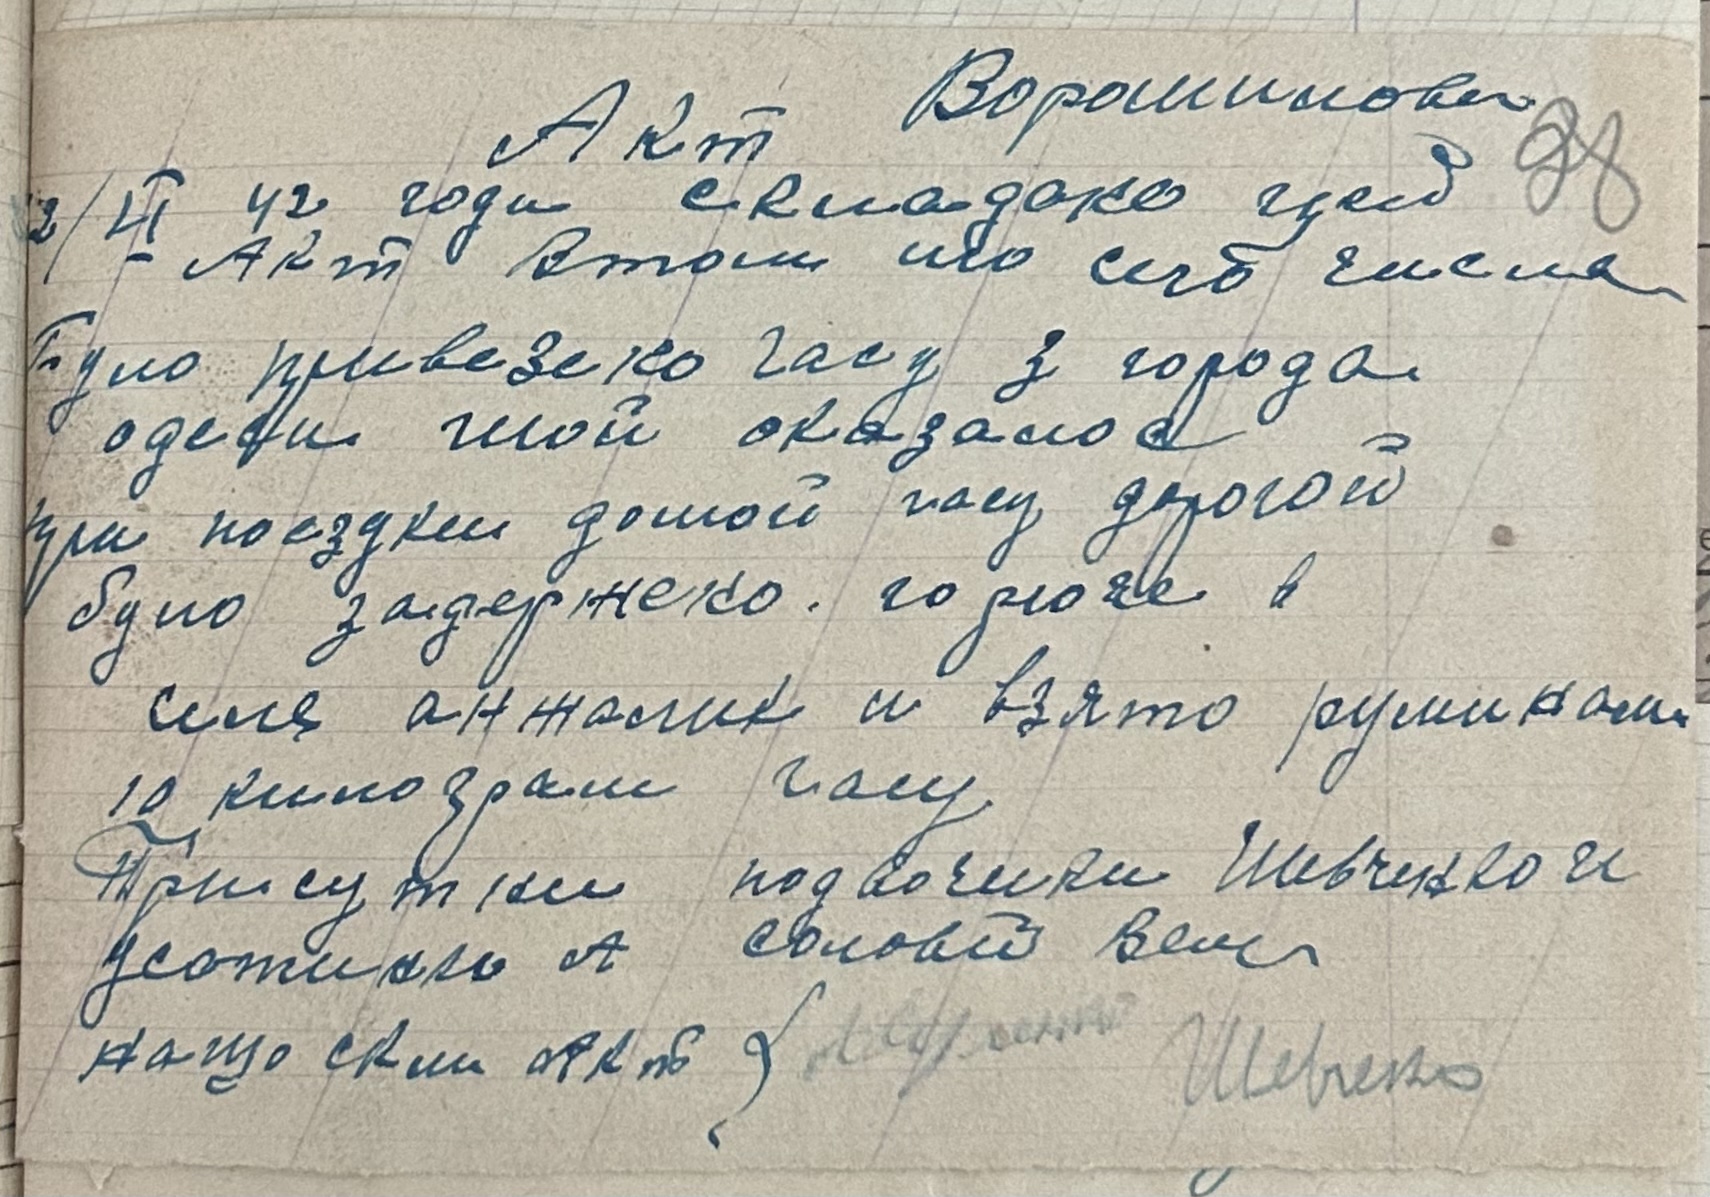 Ворошилова
28
Акт
2/VI 42 года складоко цей
- Акт втом що сего числа
Було привезеко гасу з города
одеси мой оказалос
при поездки домой гасу дорогой
було задержеко. горюче в
силе анжалик и взято румикам
10 килограм гасу
Присутки подвочики Шевчекко и
усатикко А соловий
кащо скли Акт {
Шевчеко